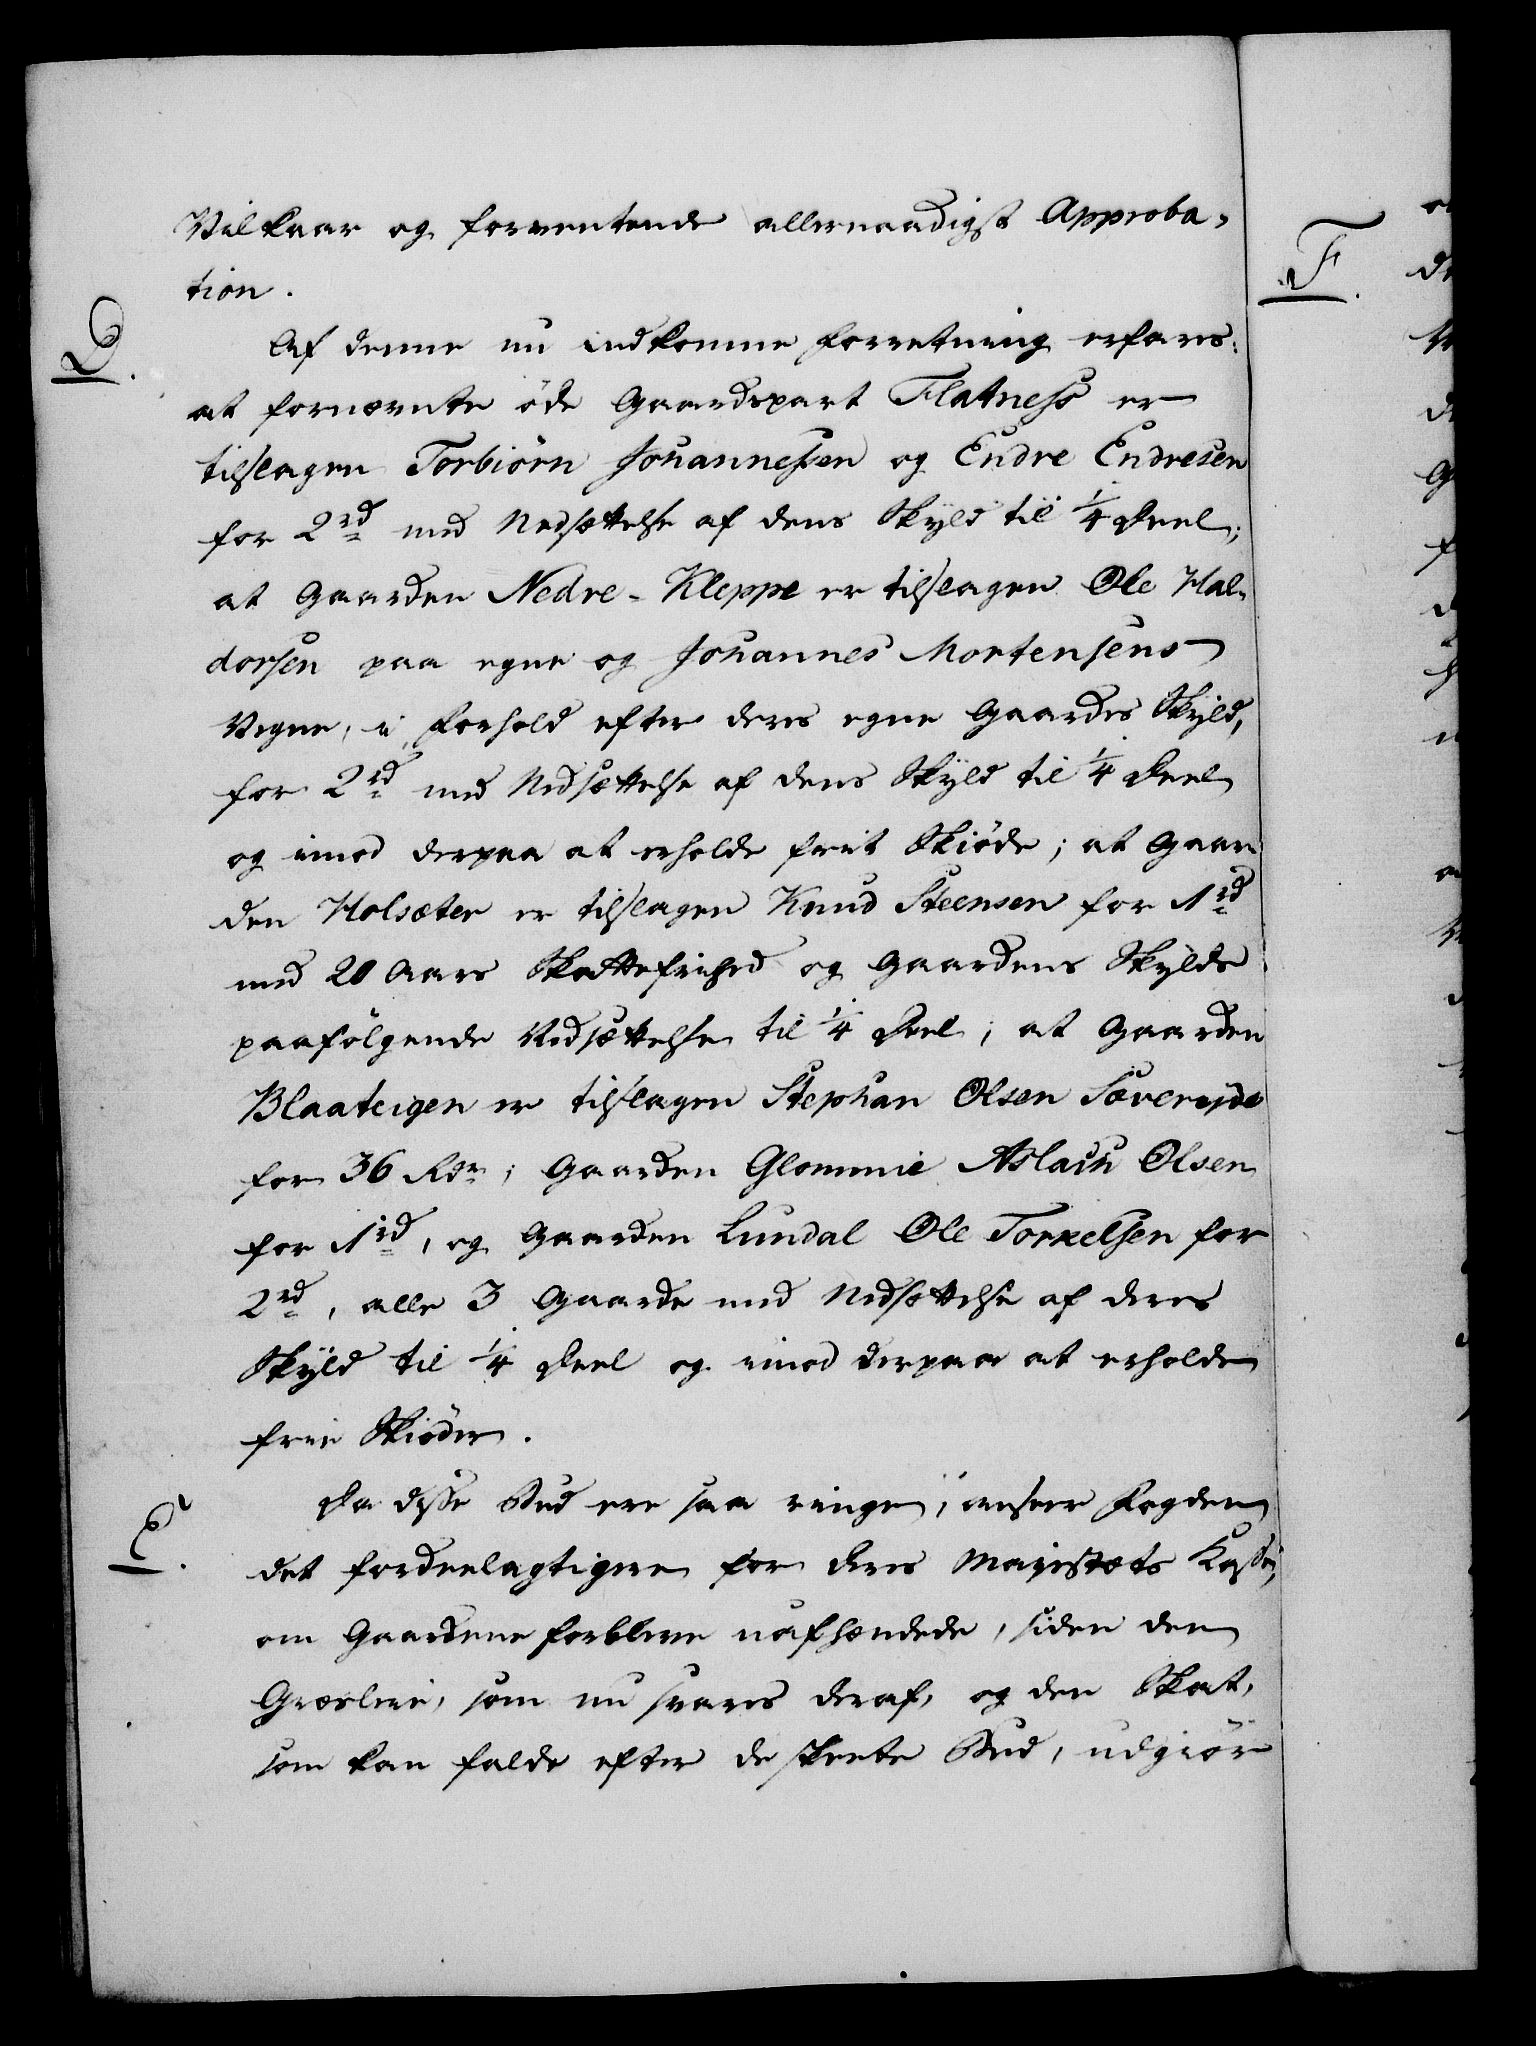 Vilkaar og forventende allernaadigst Approba-
tion.
D.
Af denne nu indkomne Forretning erfares:
at fornævnte öde Gaardspart Flatness er
tilslagen Torbiörn Johannessen og Endre Endresen
for 2 rd med Nedsættelse af dens Skyld til 1/4 Deel;
at Gaarden Nedre-Kleppe er tilslagen Ole Hal-
dorsen paa egne og Johannes Mortensens
Vegne, i Forhold efter deres egne Gaardes Skyld,
for 2 rd med Nedsættelse af dens Skyld til 1/4 Deel
og imod derpaa at erholde frit Skiöde; at Gaar-
den Holsæter er tilslagen Knud Steensen for 1 rd
med 20 Aars Skattefrihed og Gaardens Skylds
paafölgende Nedsættelse til 1/4 Deel; at Gaarden
Blaateigen er tilslagen Stephan Olsen Sävereide
for 36 Rdr; Gaarden Glommie Aslach Olsen
for 1 rd, og Gaarden Lundal Ole Torkelsen for
2 rd, alle 3 Gaarde med Nedsættelse af deres
Skyld til 1/4 Deel og imod derpaa at erholde
frie Skiöder.
E.
Da disse Bud ere saa ringe, anseer Fogden
det fordeelagtigere for Deres Majestæts Kasse,
om Gaardene forblive uafhændede, siden den
Græsleie, som nu svares deraf, og den Skat,
som kan falde efter de skeete Bud, udgiör
F.